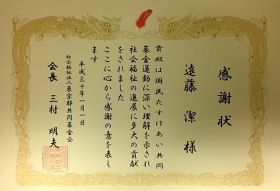 感謝状
遠藤 潔 様
貴殿は国民たすけあい共同
募金運動に深い理解を示され
社会福祉の進展に多大の貢献
をされました
ここに心から感謝の意を表し
ます
平成三十年一月一日
社会福祉法人東京都共同募金会
会長 三村 明夫